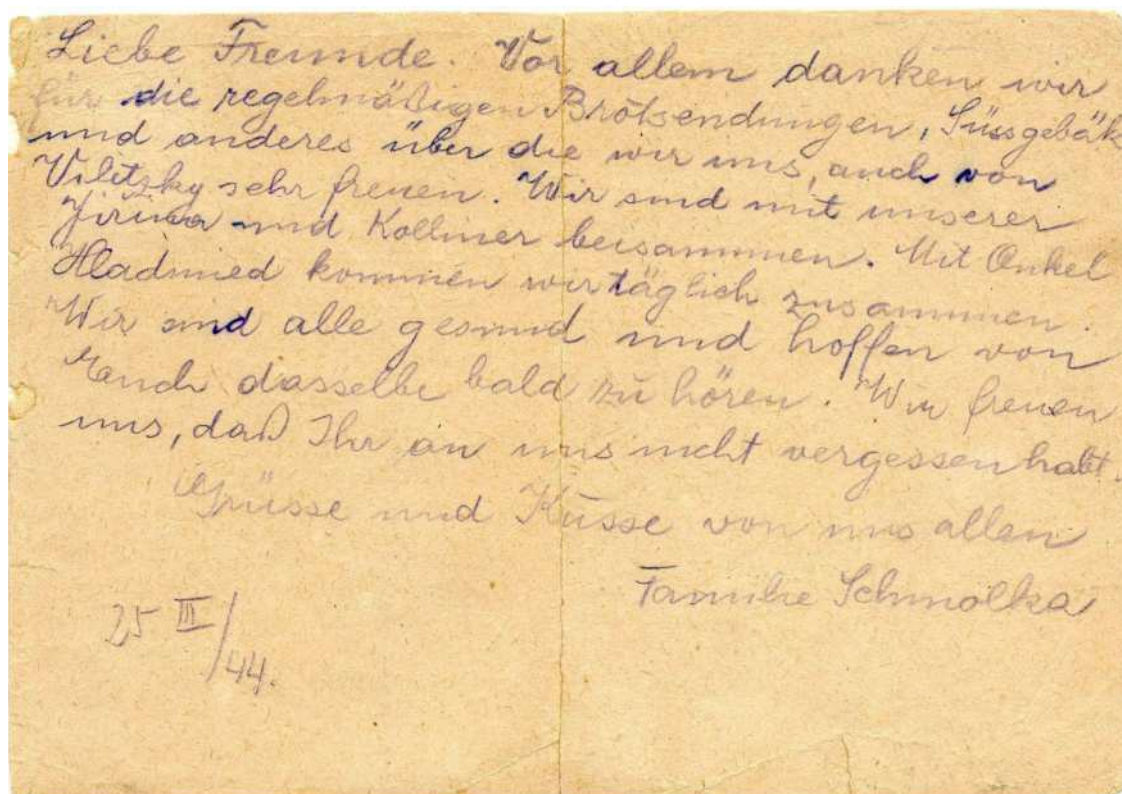 Liebe Freunde. Vor allem danken wir
für die regelmäßigen Brotsendungen, Süssgebäk
und anderes über die wir uns, auch von
Vilitzky sehr freuen. Wir sind mit unserer
und Kollmer beisammen. Mit Onkel
kommen wir täglich zusammen.
Wir sind alle gesund und hoffen von
Euch dasselbe bald zu hören. Wir freuen
uns, daß Ihr an uns nicht vergessen habt.
Grüsse und Küsse von uns allen
Familie Schmolka
25 III/44.